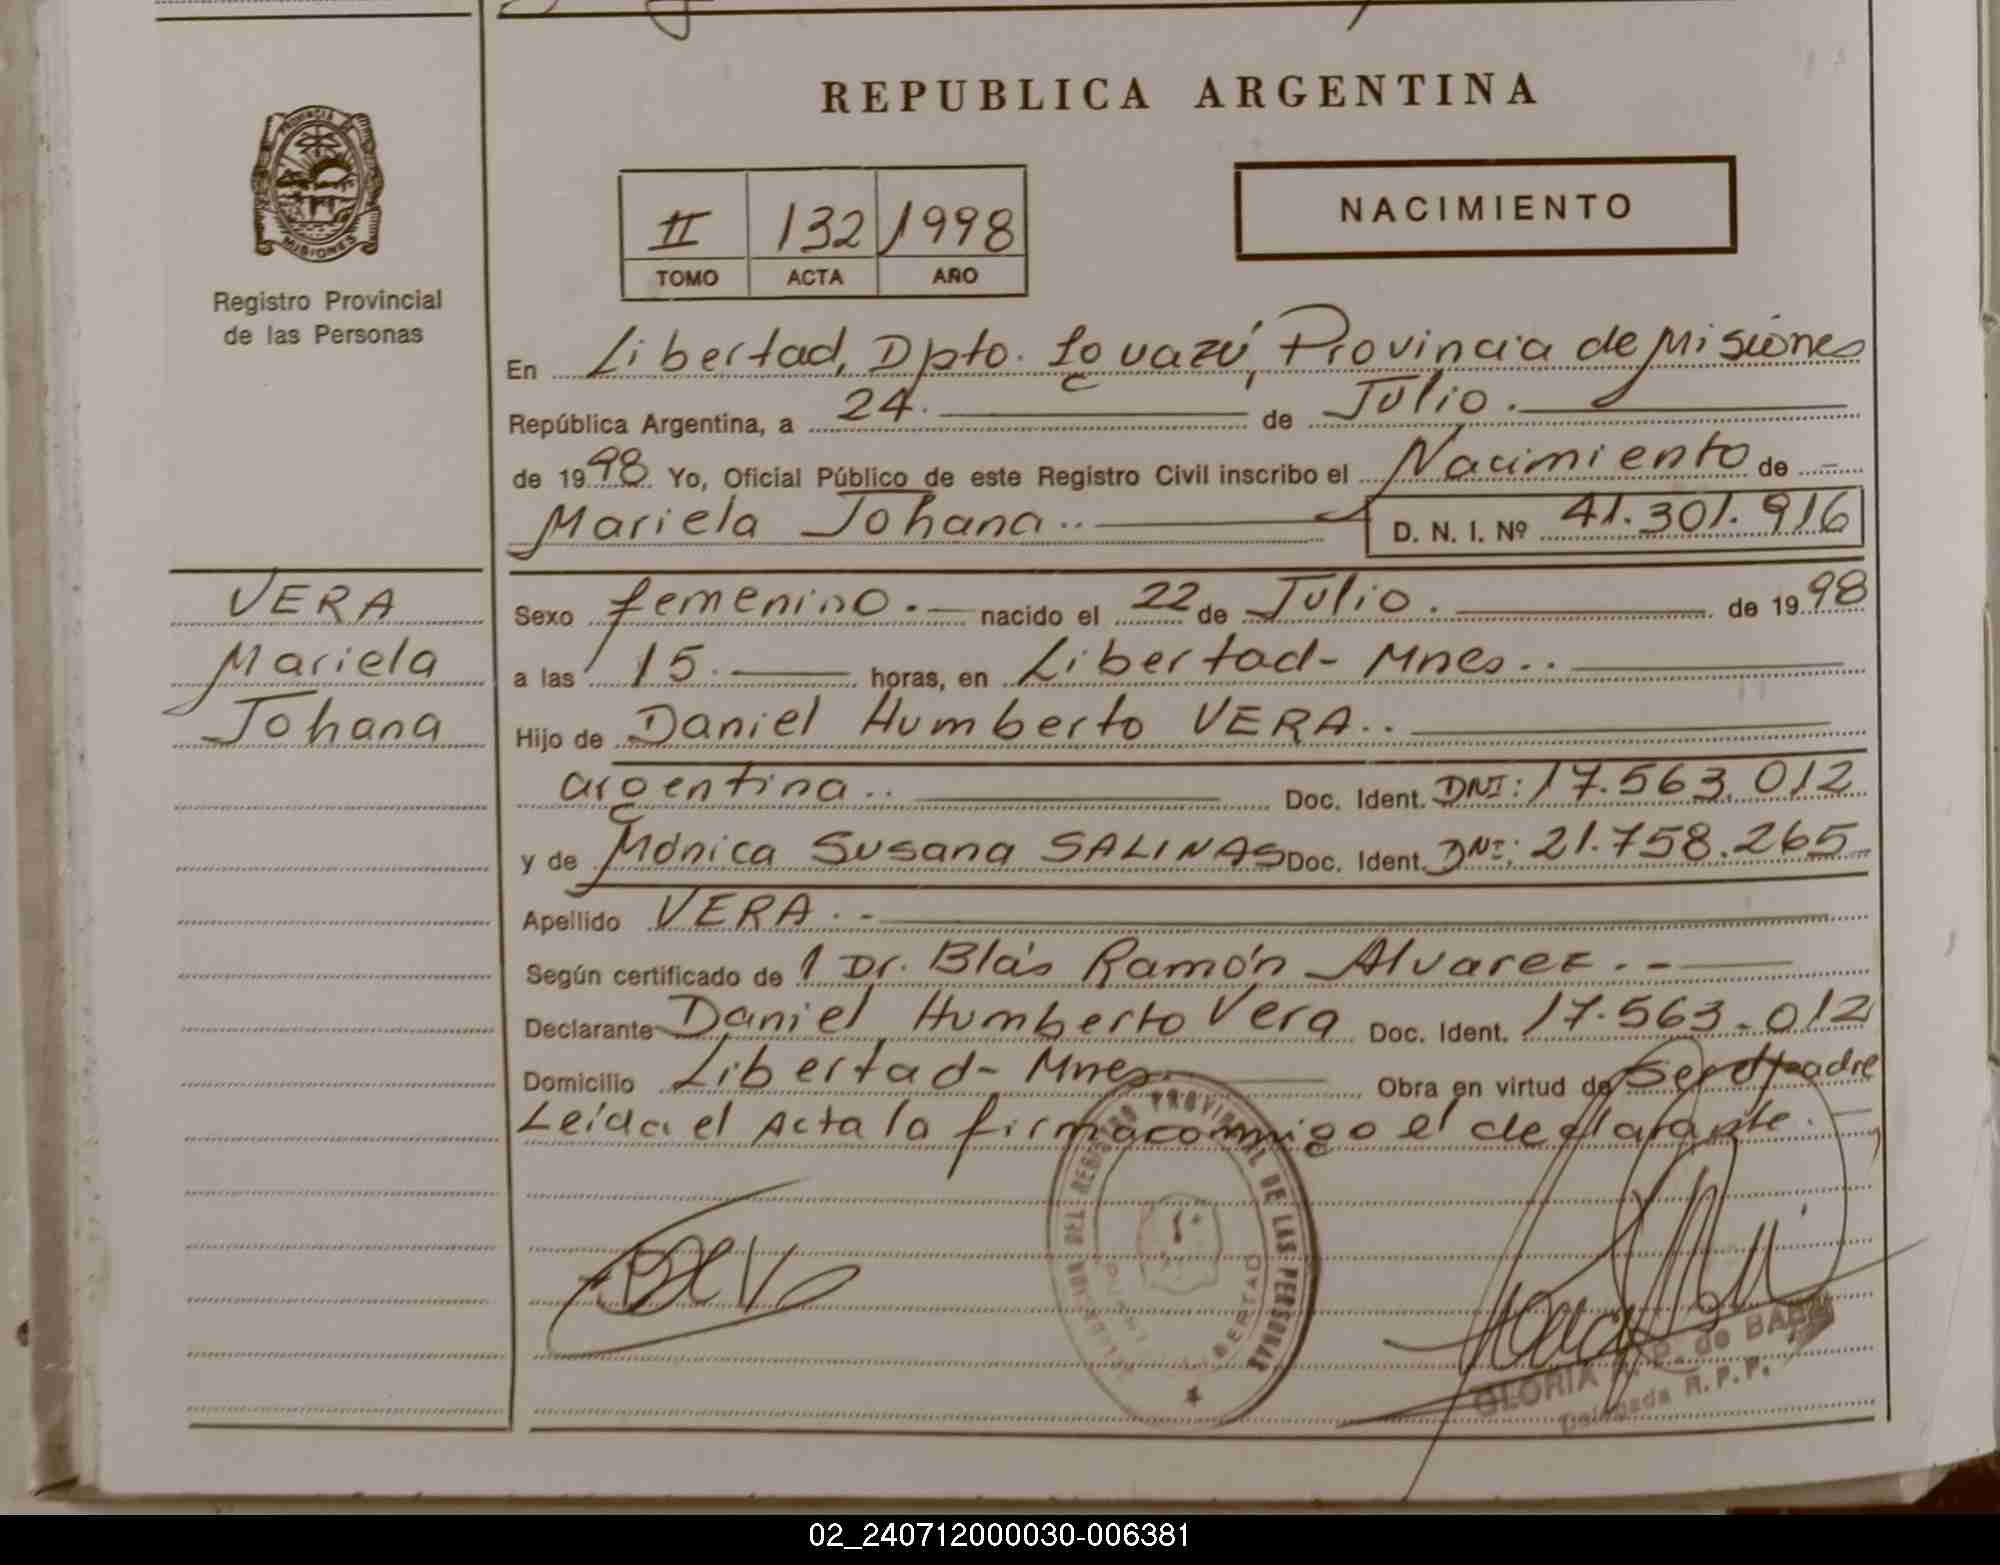 REPUBLICA ARGENTINA
PROVINCIA DE
MISIONES
Registro Provincial
de las Personas
II 132 1998
TOMO ACTA AÑO
NACIMIENTO
En Libertad, Dpto. Iguazú, Provincia de Misiones
República Argentina, a 24. de Julio.
de 1998 Yo, Oficial Público de este Registro Civil inscribo el Nacimiento de
Mariela Johana.. D. N. I. Nº 41.301.916
VERA
Mariela
Johana
Sexo femenino. nacido el 22 de Julio. de 1998
a las 15. horas, en Libertad- Mnes..
Hijo de Daniel Humberto VERA..
argentina.. Doc. Ident. DNI: 17.563.012
y de Mónica Susana SALINAS Doc. Ident. DNI: 21.758.265
Apellido VERA.-
Según certificado de 1 Dr. Blás Ramón Alvarez.-
Declarante Daniel Humberto Vera Doc. Ident. 17.563.012
Domicilio Libertad- Mnes Obra en virtud de Ser el padre
Leída el Acta la firma conmigo el declarante.
DEL REGISTRO PROVINCIAL DE LAS PERSONAS
LIBERTAD
GLORIA de
Delegada R.P.P.
02_240712000030-006381